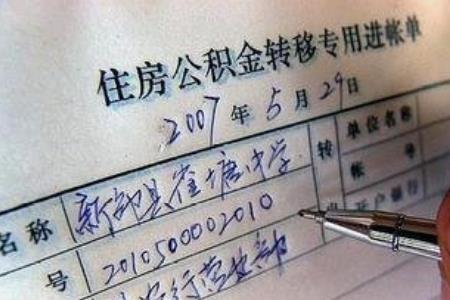 住房公积金转移专用进帐单
2007年5月29日
名称 新郑县崔塘中学 转 单位名称
号 2010500002010 帐号
行营业部 开户银行